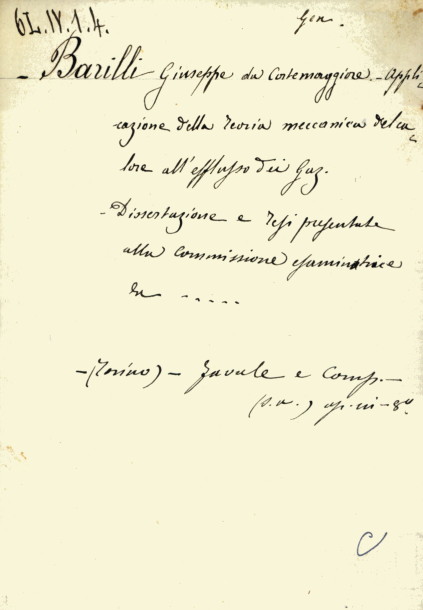 6L.IV.1.4.
Gen.
- Barilli Giuseppe da Cortemaggiore - Appli
cazione della Teoria meccanica del ca-
lore all'efflusso dei Gaz.
- Dissertazione e Tesi presentate
alla Commissione esaminatrice
da .....
- (Torino) - Favale e Comp. -
(s.a.) op. in - 8º
C